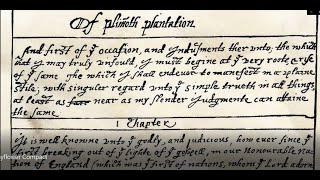 Of plimoth plantation.
And first of yͤ occasion, and Indusments ther vnto; the which
that I may truly vnfould, I must begine at yͤ very roote, & rise
of yͤ same. The which I shall endevor to manefest in a plaine
stile; with singuler regard vnto yͤ simple trueth in all things,
at least as far near as my slender Judgmente can attaine
the same.
1 Chapter
It is well knowne vnto yͤ godly, and judicious; how ever since yͤ
first breaking out of yͤ lighte of yͤ gospell, in our Honourable na-
tion of England (which was yͤ first of nations, whom yͤ Lord adorn
Compact